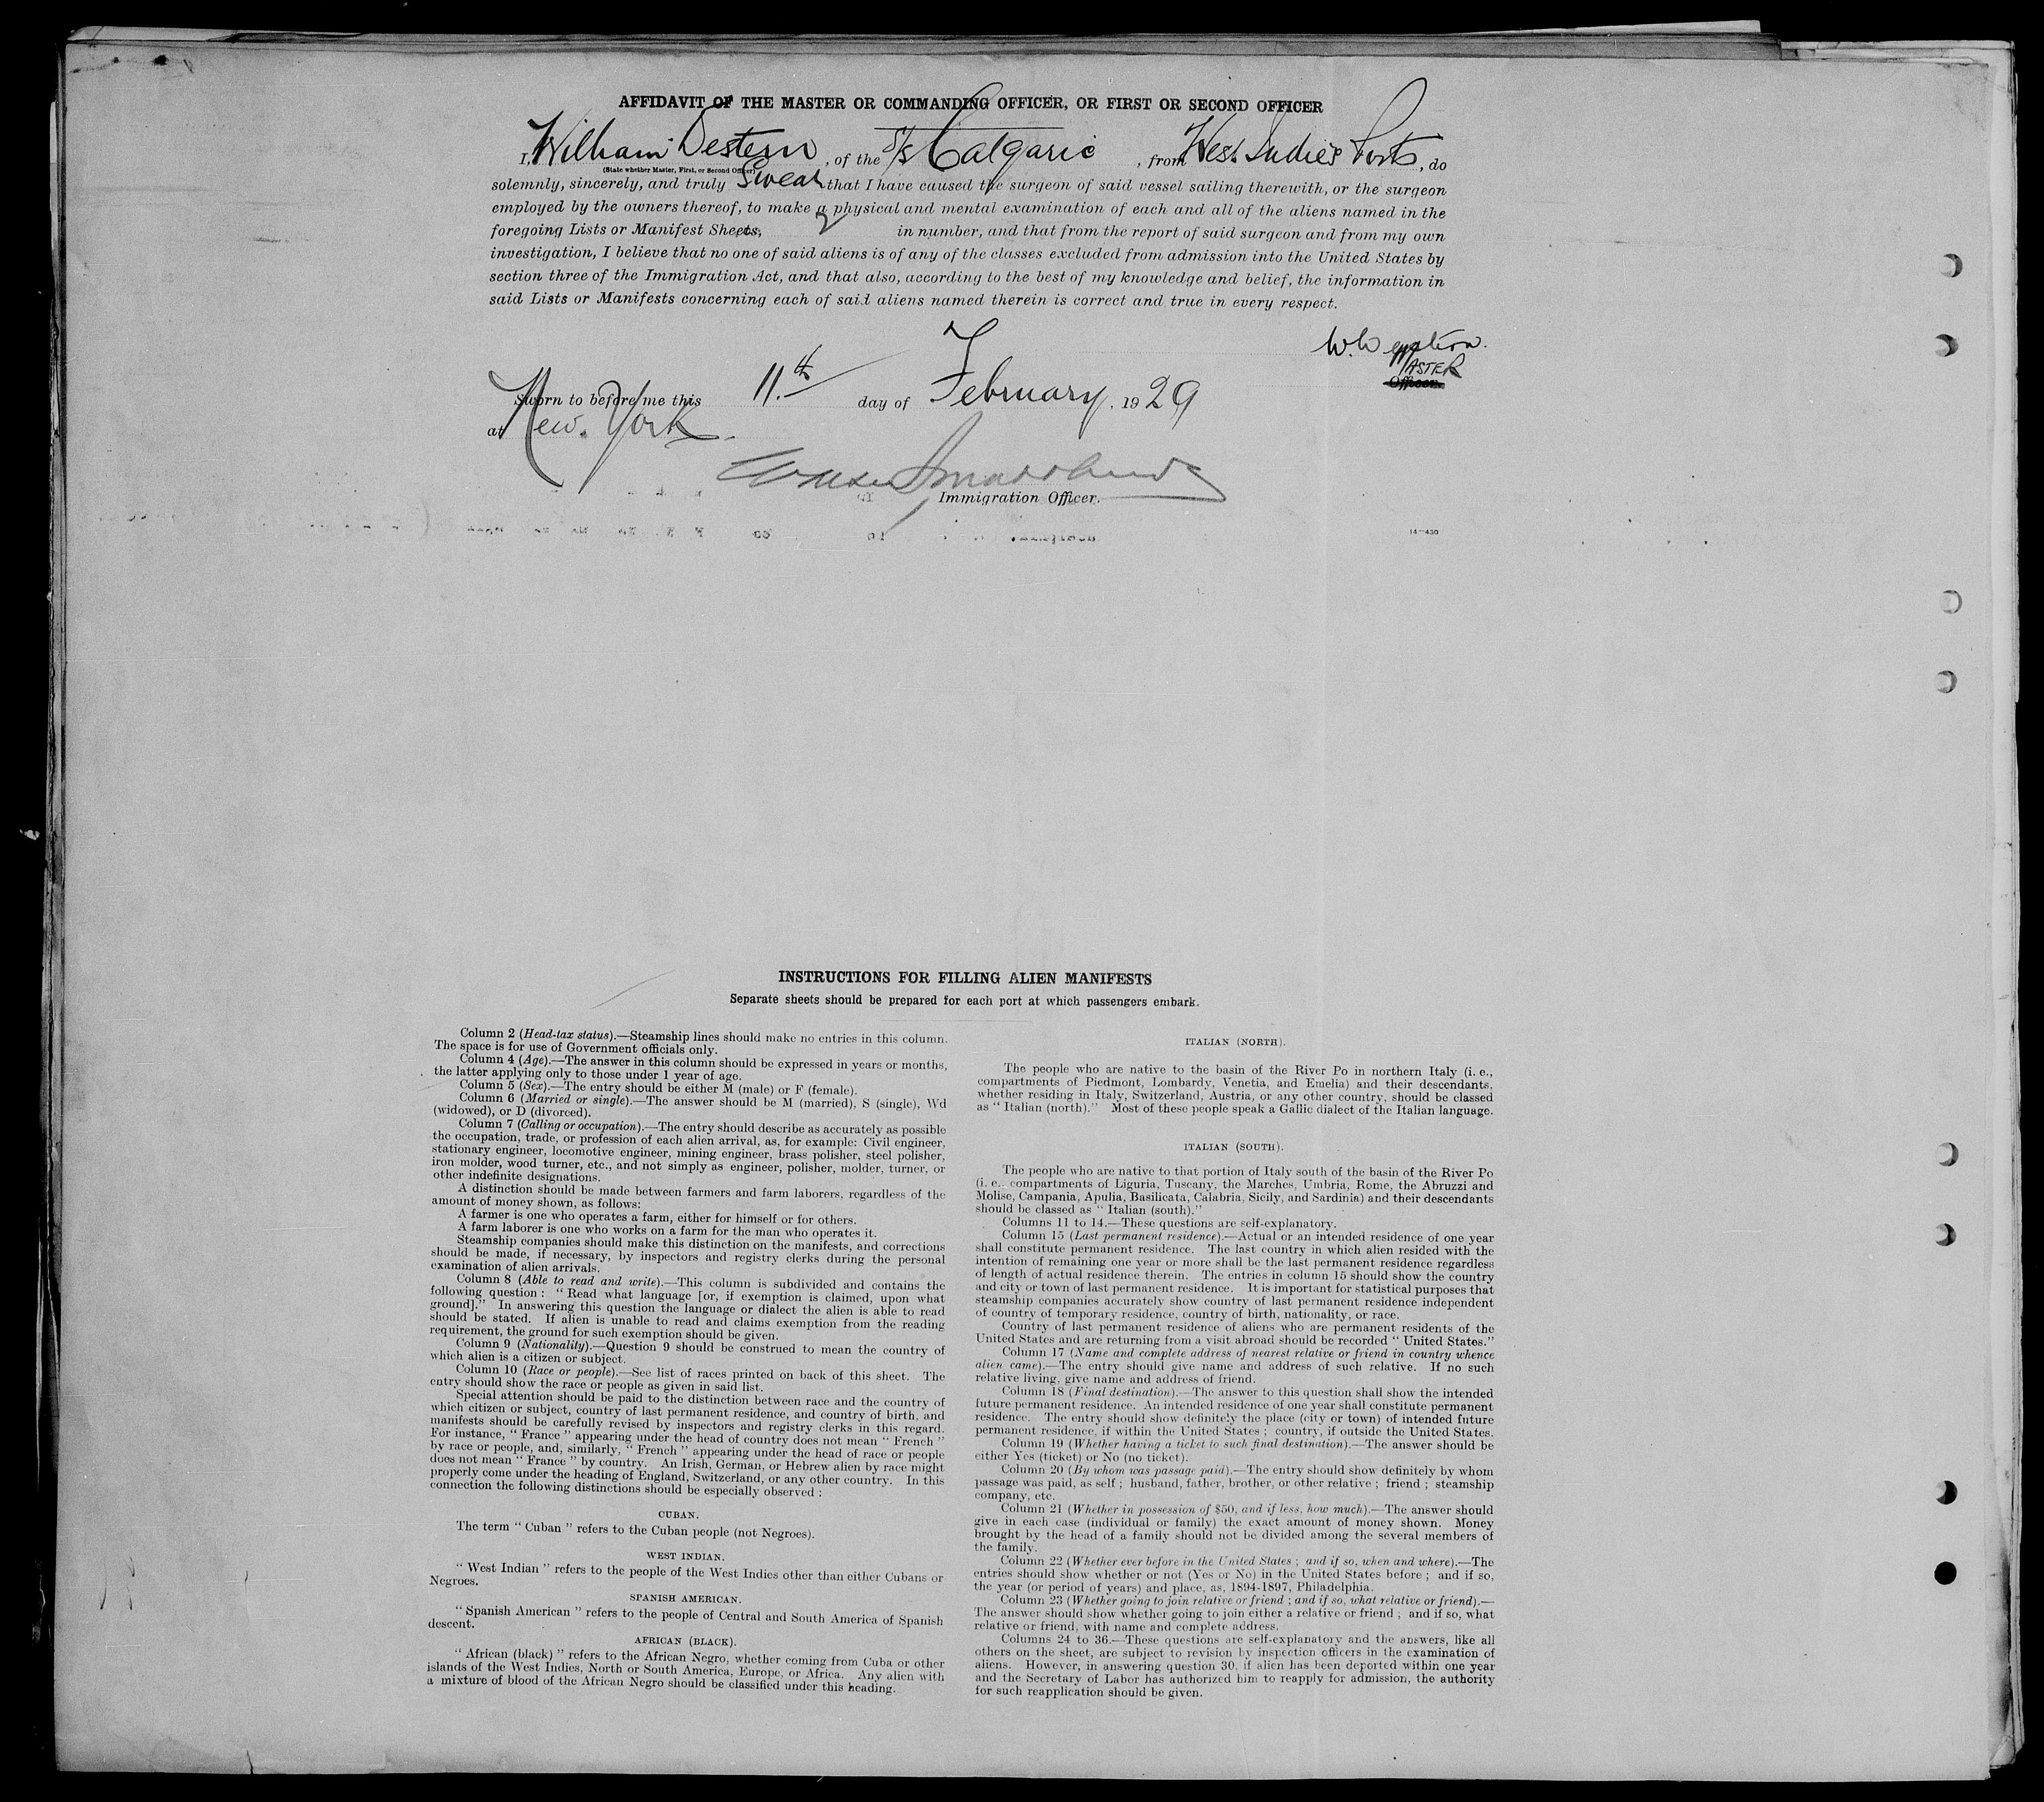 AFFIDAVIT OF THE MASTER OR COMMANDING OFFICER, OR FIRST OR SECOND OFFICER
I, William Western, of the S/S Calgaric, from West Indies Ports, do
(State whether Master, First, or Second Officer)
solemnly, sincerely, and truly Swear that I have caused the surgeon of said vessel sailing therewith, or the surgeon
employed by the owners thereof, to make a physical and mental examination of each and all of the aliens named in the
foregoing Lists or Manifest Sheets, 2 in number, and that from the report of said surgeon and from my own
investigation, I believe that no one of said aliens is of any of the classes excluded from admission into the United States by
section three of the Immigration Act, and that also, according to the best of my knowledge and belief, the information in
said Lists or Manifests concerning each of said aliens named therein is correct and true in every respect.
MASTER
Officer.
Sworn to before me this 11.th day of February, 1929
at New York.
Immigration Officer.
14—430
INSTRUCTIONS FOR FILLING ALIEN MANIFESTS
Separate sheets should be prepared for each port at which passengers embark.
Column 2 (Head-tax status).—Steamship lines should make no entries in this column.
The space is for use of Government officials only.
Column 4 (Age).—The answer in this column should be expressed in years or months,
the latter applying only to those under 1 year of age.
Column 5 (Sex).—The entry should be either M (male) or F (female).
Column 6 (Married or single).—The answer should be M (married), S (single), Wd
(widowed), or D (divorced).
Column 7 (Calling or occupation).—The entry should describe as accurately as possible
the occupation, trade, or profession of each alien arrival, as, for example: Civil engineer,
stationary engineer, locomotive engineer, mining engineer, brass polisher, steel polisher,
iron molder, wood turner, etc., and not simply as engineer, polisher, molder, turner, or
other indefinite designations.
A distinction should be made between farmers and farm laborers, regardless of the
amount of money shown, as follows:
A farmer is one who operates a farm, either for himself or for others.
A farm laborer is one who works on a farm for the man who operates it.
Steamship companies should make this distinction on the manifests, and corrections
should be made, if necessary, by inspectors and registry clerks during the personal
examination of alien arrivals.
Column 8 (Able to read and write).—This column is subdivided and contains the
following question: " Read what language [or, if exemption is claimed, upon what
ground]." In answering this question the language or dialect the alien is able to read
should be stated. If alien is unable to read and claims exemption from the reading
requirement, the ground for such exemption should be given.
Column 9 (Nationality).—Question 9 should be construed to mean the country of
which alien is a citizen or subject.
Column 10 (Race or people).—See list of races printed on back of this sheet. The
entry should show the race or people as given in said list.
Special attention should be paid to the distinction between race and the country of
which citizen or subject, country of last permanent residence, and country of birth, and
manifests should be carefully revised by inspectors and registry clerks in this regard.
For instance, " France " appearing under the head of country does not mean " French "
by race or people, and, similarly, " French " appearing under the head of race or people
does not mean " France " by country. An Irish, German, or Hebrew alien by race might
properly come under the heading of England, Switzerland, or any other country. In this
connection the following distinctions should be especially observed :
CUBAN.
The term " Cuban " refers to the Cuban people (not Negroes).
WEST INDIAN.
" West Indian " refers to the people of the West Indies other than either Cubans or
Negroes.
SPANISH AMERICAN.
" Spanish American " refers to the people of Central and South America of Spanish
descent.
AFRICAN (BLACK).
" African (black) " refers to the African Negro, whether coming from Cuba or other
islands of the West Indies, North or South America, Europe, or Africa. Any alien with
a mixture of blood of the African Negro should be classified under this heading.
ITALIAN (NORTH).
The people who are native to the basin of the River Po in northern Italy (i. e.,
compartments of Piedmont, Lombardy, Venetia, and Emelia) and their descendants,
whether residing in Italy, Switzerland, Austria, or any other country, should be classed
as " Italian (north)." Most of these people speak a Gallic dialect of the Italian language.
ITALIAN (SOUTH).
The people who are native to that portion of Italy south of the basin of the River Po
(i. e., compartments of Liguria, Tuscany, the Marches, Umbria, Rome, the Abruzzi and
Molise, Campania, Apulia, Basilicata, Calabria, Sicily, and Sardinia) and their descendants
should be classed as " Italian (south)."
Columns 11 to 14.—These questions are self-explanatory.
Column 15 (Last permanent residence).—Actual or an intended residence of one year
shall constitute permanent residence. The last country in which alien resided with the
intention of remaining one year or more shall be the last permanent residence regardless
of length of actual residence therein. The entries in column 15 should show the country
and city or town of last permanent residence. It is important for statistical purposes that
steamship companies accurately show country of last permanent residence independent
of country of temporary residence, country of birth, nationality, or race.
Country of last permanent residence of aliens who are permanent residents of the
United States and are returning from a visit abroad should be recorded " United States."
Column 17 (Name and complete address of nearest relative or friend in country whence
alien came).—The entry should give name and address of such relative. If no such
relative living, give name and address of friend.
Column 18 (Final destination).—The answer to this question shall show the intended
future permanent residence. An intended residence of one year shall constitute permanent
residence. The entry should show definitely the place (city or town) of intended future
permanent residence, if within the United States ; country, if outside the United States.
Column 19 (Whether having a ticket to such final destination).—The answer should be
either Yes (ticket) or No (no ticket).
Column 20 (By whom was passage paid).—The entry should show definitely by whom
passage was paid, as self ; husband, father, brother, or other relative ; friend ; steamship
company, etc.
Column 21 (Whether in possession of $50, and if less, how much).—The answer should
give in each case (individual or family) the exact amount of money shown. Money
brought by the head of a family should not be divided among the several members of
the family.
Column 22 (Whether ever before in the United States ; and if so, when and where).—The
entries should show whether or not (Yes or No) in the United States before ; and if so,
the year (or period of years) and place, as, 1894-1897, Philadelphia.
Column 23 (Whether going to join relative or friend ; and if so, what relative or friend).—
The answer should show whether going to join either a relative or friend ; and if so, what
relative or friend, with name and complete address.
Columns 24 to 36.—These questions are self-explanatory and the answers, like all
others on the sheet, are subject to revision by inspection officers in the examination of
aliens. However, in answering question 30, if alien has been deported within one year
and the Secretary of Labor has authorized him to reapply for admission, the authority
for such reapplication should be given.